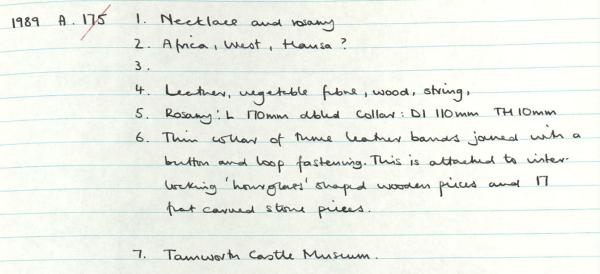 1989 A.175 1. Necklace and rosary
2. Africa, West, Hausa?
3.
4. Leather, vegetable fibre, wood, string,
5. Rosary: L 170mm dbled Collar: DI 110mm TH 10mm
6. Thin collar of three leather bands joined with a
button and loop fastening. This is attached to inter-
locking 'hourglass' shaped wooden pieces and 17
flat carved stone pieces.
7. Tamworth Castle Museum.